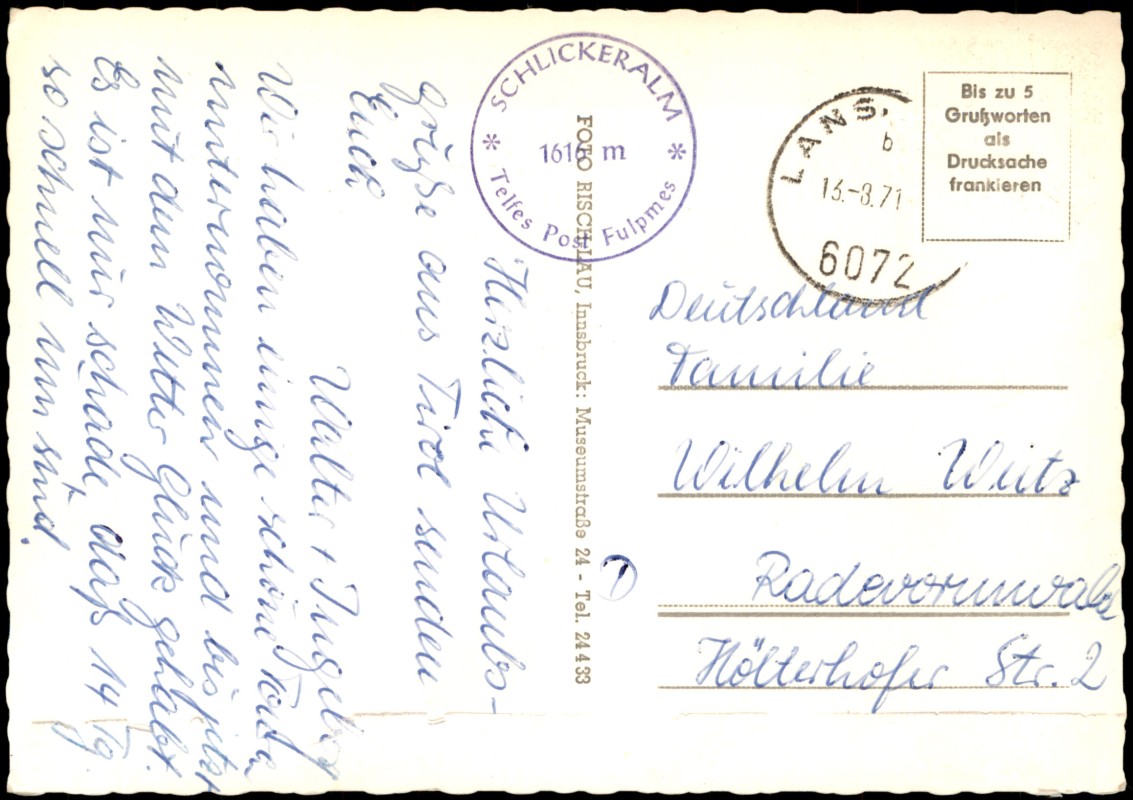 Herzliche Urlaubs-
grüße aus Tirol senden
Euch
Walter + Ingeborg
Wir haben einige schöne Touren
unternommen und bis jetzt
mit dem Wetter Glück gehabt.
Es ist nur schade, daß 14 Tg.
so schnell um sind.
SCHLICKERALM
* 1616 m *
Telfes Post Fulpmes
FOTO RISCHLAU, Innsbruck: Museumstraße 24 - Tel. 24433
LANS
b
13.-8.71
6072
Bis zu 5
Grußworten
als
Drucksache
frankieren
Deutschland
Familie
Wilhelm Weitz
Radevormwald
Hölterhofer Str. 2